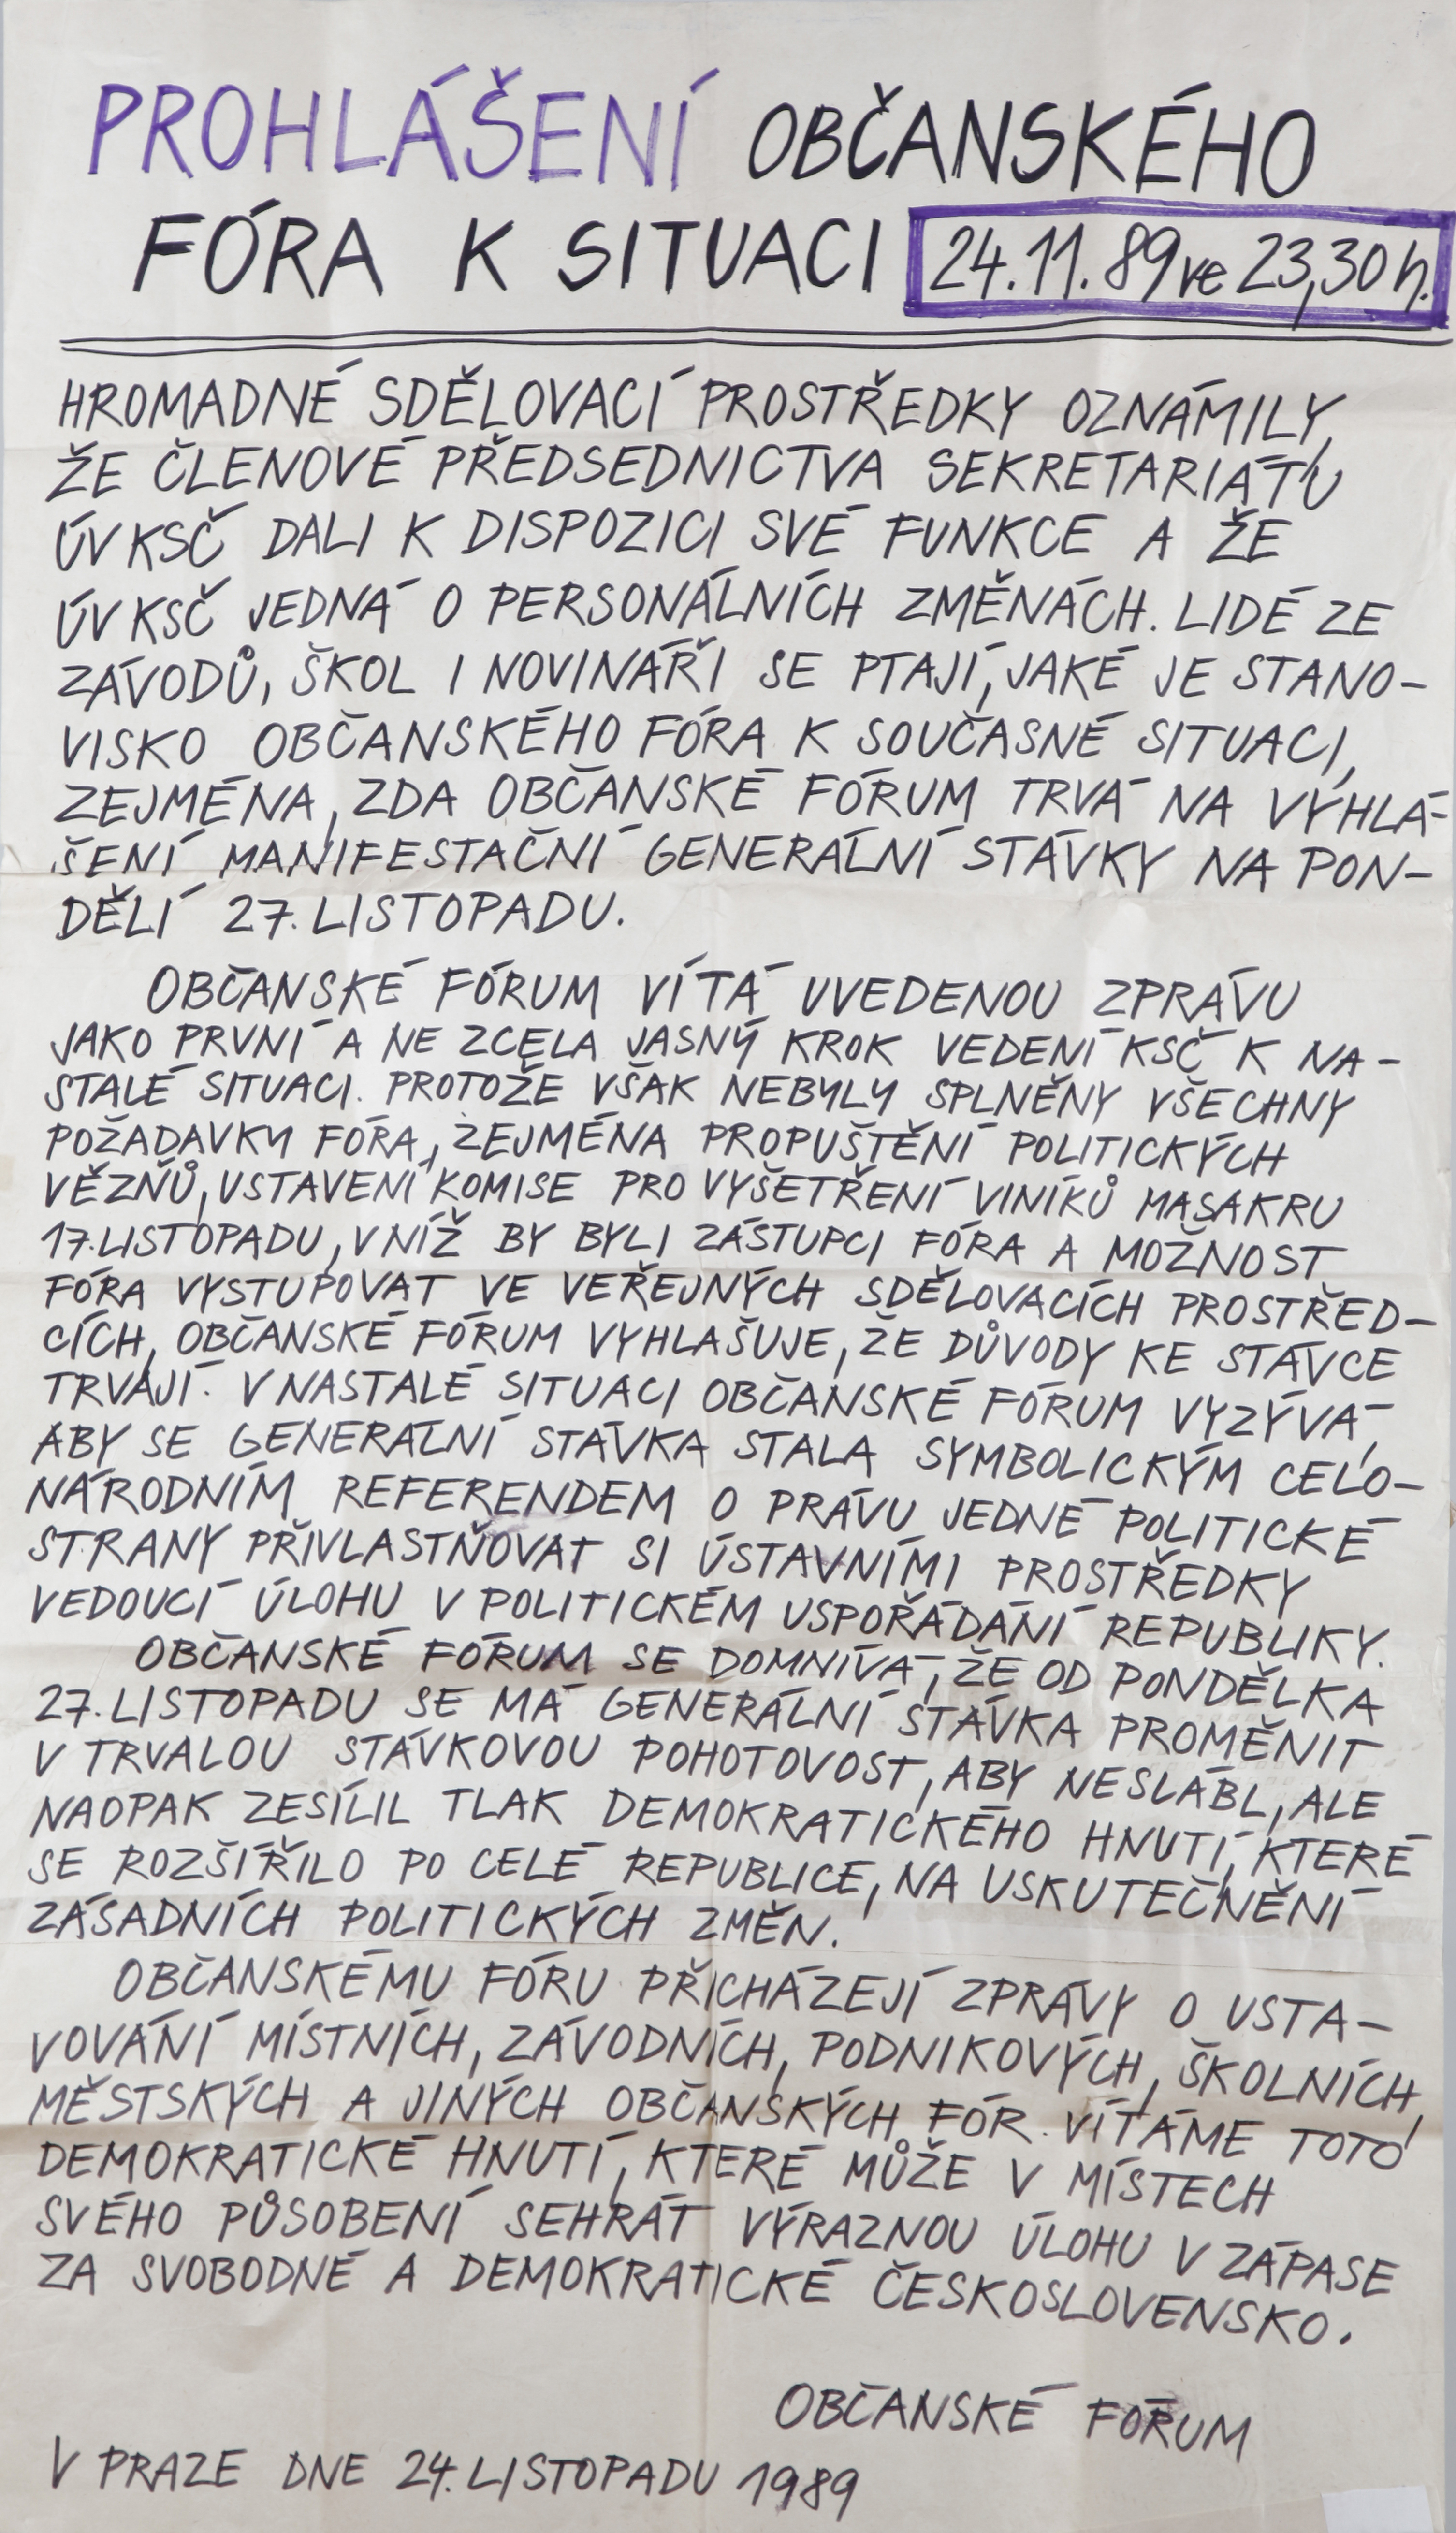 PROHLÁŠENÍ OBČANSKÉHO
FÓRA K SITUACI 24.11.89 ve 23,30 h.
HROMADNÉ SDĚLOVACÍ PROSTŘEDKY OZNÁMILY,
ŽE ČLENOVÉ PŘEDSEDNICTVA SEKRETARIÁTU
ÚV KSČ DALI K DISPOZICI SVÉ FUNKCE A ŽE
ÚV KSČ JEDNÁ O PERSONÁLNÍCH ZMĚNÁCH. LIDÉ ZE
ZÁVODŮ, ŠKOL I NOVINÁŘI SE PTAJÍ, JAKÉ JE STANO-
VISKO OBČANSKÉHO FÓRA K SOUČASNÉ SITUACI,
ZEJMÉNA, ZDA OBČANSKÉ FÓRUM TRVÁ NA VYHLÁ-
ŠENÍ MANIFESTAČNÍ GENERÁLNÍ STÁVKY NA PON-
DĚLÍ 27. LISTOPADU.
OBČANSKÉ FÓRUM VÍTÁ UVEDENOU ZPRÁVU
JAKO PRVNÍ A NE ZCELA JASNÝ KROK VEDENÍ KSČ K NA-
STALÉ SITUACI. PROTOŽE VŠAK NEBYLY SPLNĚNY VŠECHNY
POŽADAVKY FÓRA, ZEJMÉNA PROPUŠTĚNÍ POLITICKÝCH
VĚZŇŮ, USTAVENÍ KOMISE PRO VYŠETŘENÍ VINÍKŮ MASAKRU
17. LISTOPADU, V NÍŽ BY BYLI ZÁSTUPCI FÓRA A MOŽNOST
FÓRA VYSTUPOVAT VE VEŘEJNÝCH SDĚLOVACÍCH PROSTŘED-
CÍCH, OBČANSKÉ FÓRUM VYHLAŠUJE, ŽE DŮVODY KE STÁVCE
TRVAJÍ. V NASTALÉ SITUACI OBČANSKÉ FÓRUM VYZÝVÁ,
ABY SE GENERÁLNÍ STÁVKA STALA SYMBOLICKÝM CELO-
NÁRODNÍM REFERENDEM O PRÁVU JEDNÉ POLITICKÉ
STRANY PŘIVLASTŇOVAT SI ÚSTAVNÍMI PROSTŘEDKY
VEDOUCÍ ÚLOHU V POLITICKÉM USPOŘÁDÁNÍ REPUBLIKY.
OBČANSKÉ FÓRUM SE DOMNÍVÁ, ŽE OD PONDĚLKA
27. LISTOPADU SE MÁ GENERÁLNÍ STÁVKA PROMĚNIT
V TRVALOU STÁVKOVOU POHOTOVOST, ABY NESLÁBL, ALE
NAOPAK ZESÍLIL TLAK DEMOKRATICKÉHO HNUTÍ, KTERÉ
SE ROZŠÍŘILO PO CELÉ REPUBLICE, NA USKUTEČNĚNÍ
ZÁSADNÍCH POLITICKÝCH ZMĚN.
OBČANSKÉMU FÓRU PŘICHÁZEJÍ ZPRÁVY O USTA-
VOVÁNÍ MÍSTNÍCH, ZÁVODNÍCH, PODNIKOVÝCH, ŠKOLNÍCH,
MĚSTSKÝCH A JINÝCH OBČANSKÝCH FÓR. VÍTÁME TOTO
DEMOKRATICKÉ HNUTÍ, KTERÉ MŮŽE V MÍSTECH
SVÉHO PŮSOBENÍ SEHRÁT VÝRAZNOU ÚLOHU V ZÁPASE
ZA SVOBODNÉ A DEMOKRATICKÉ ČESKOSLOVENSKO.
OBČANSKÉ FÓRUM
V PRAZE DNE 24. LISTOPADU 1989